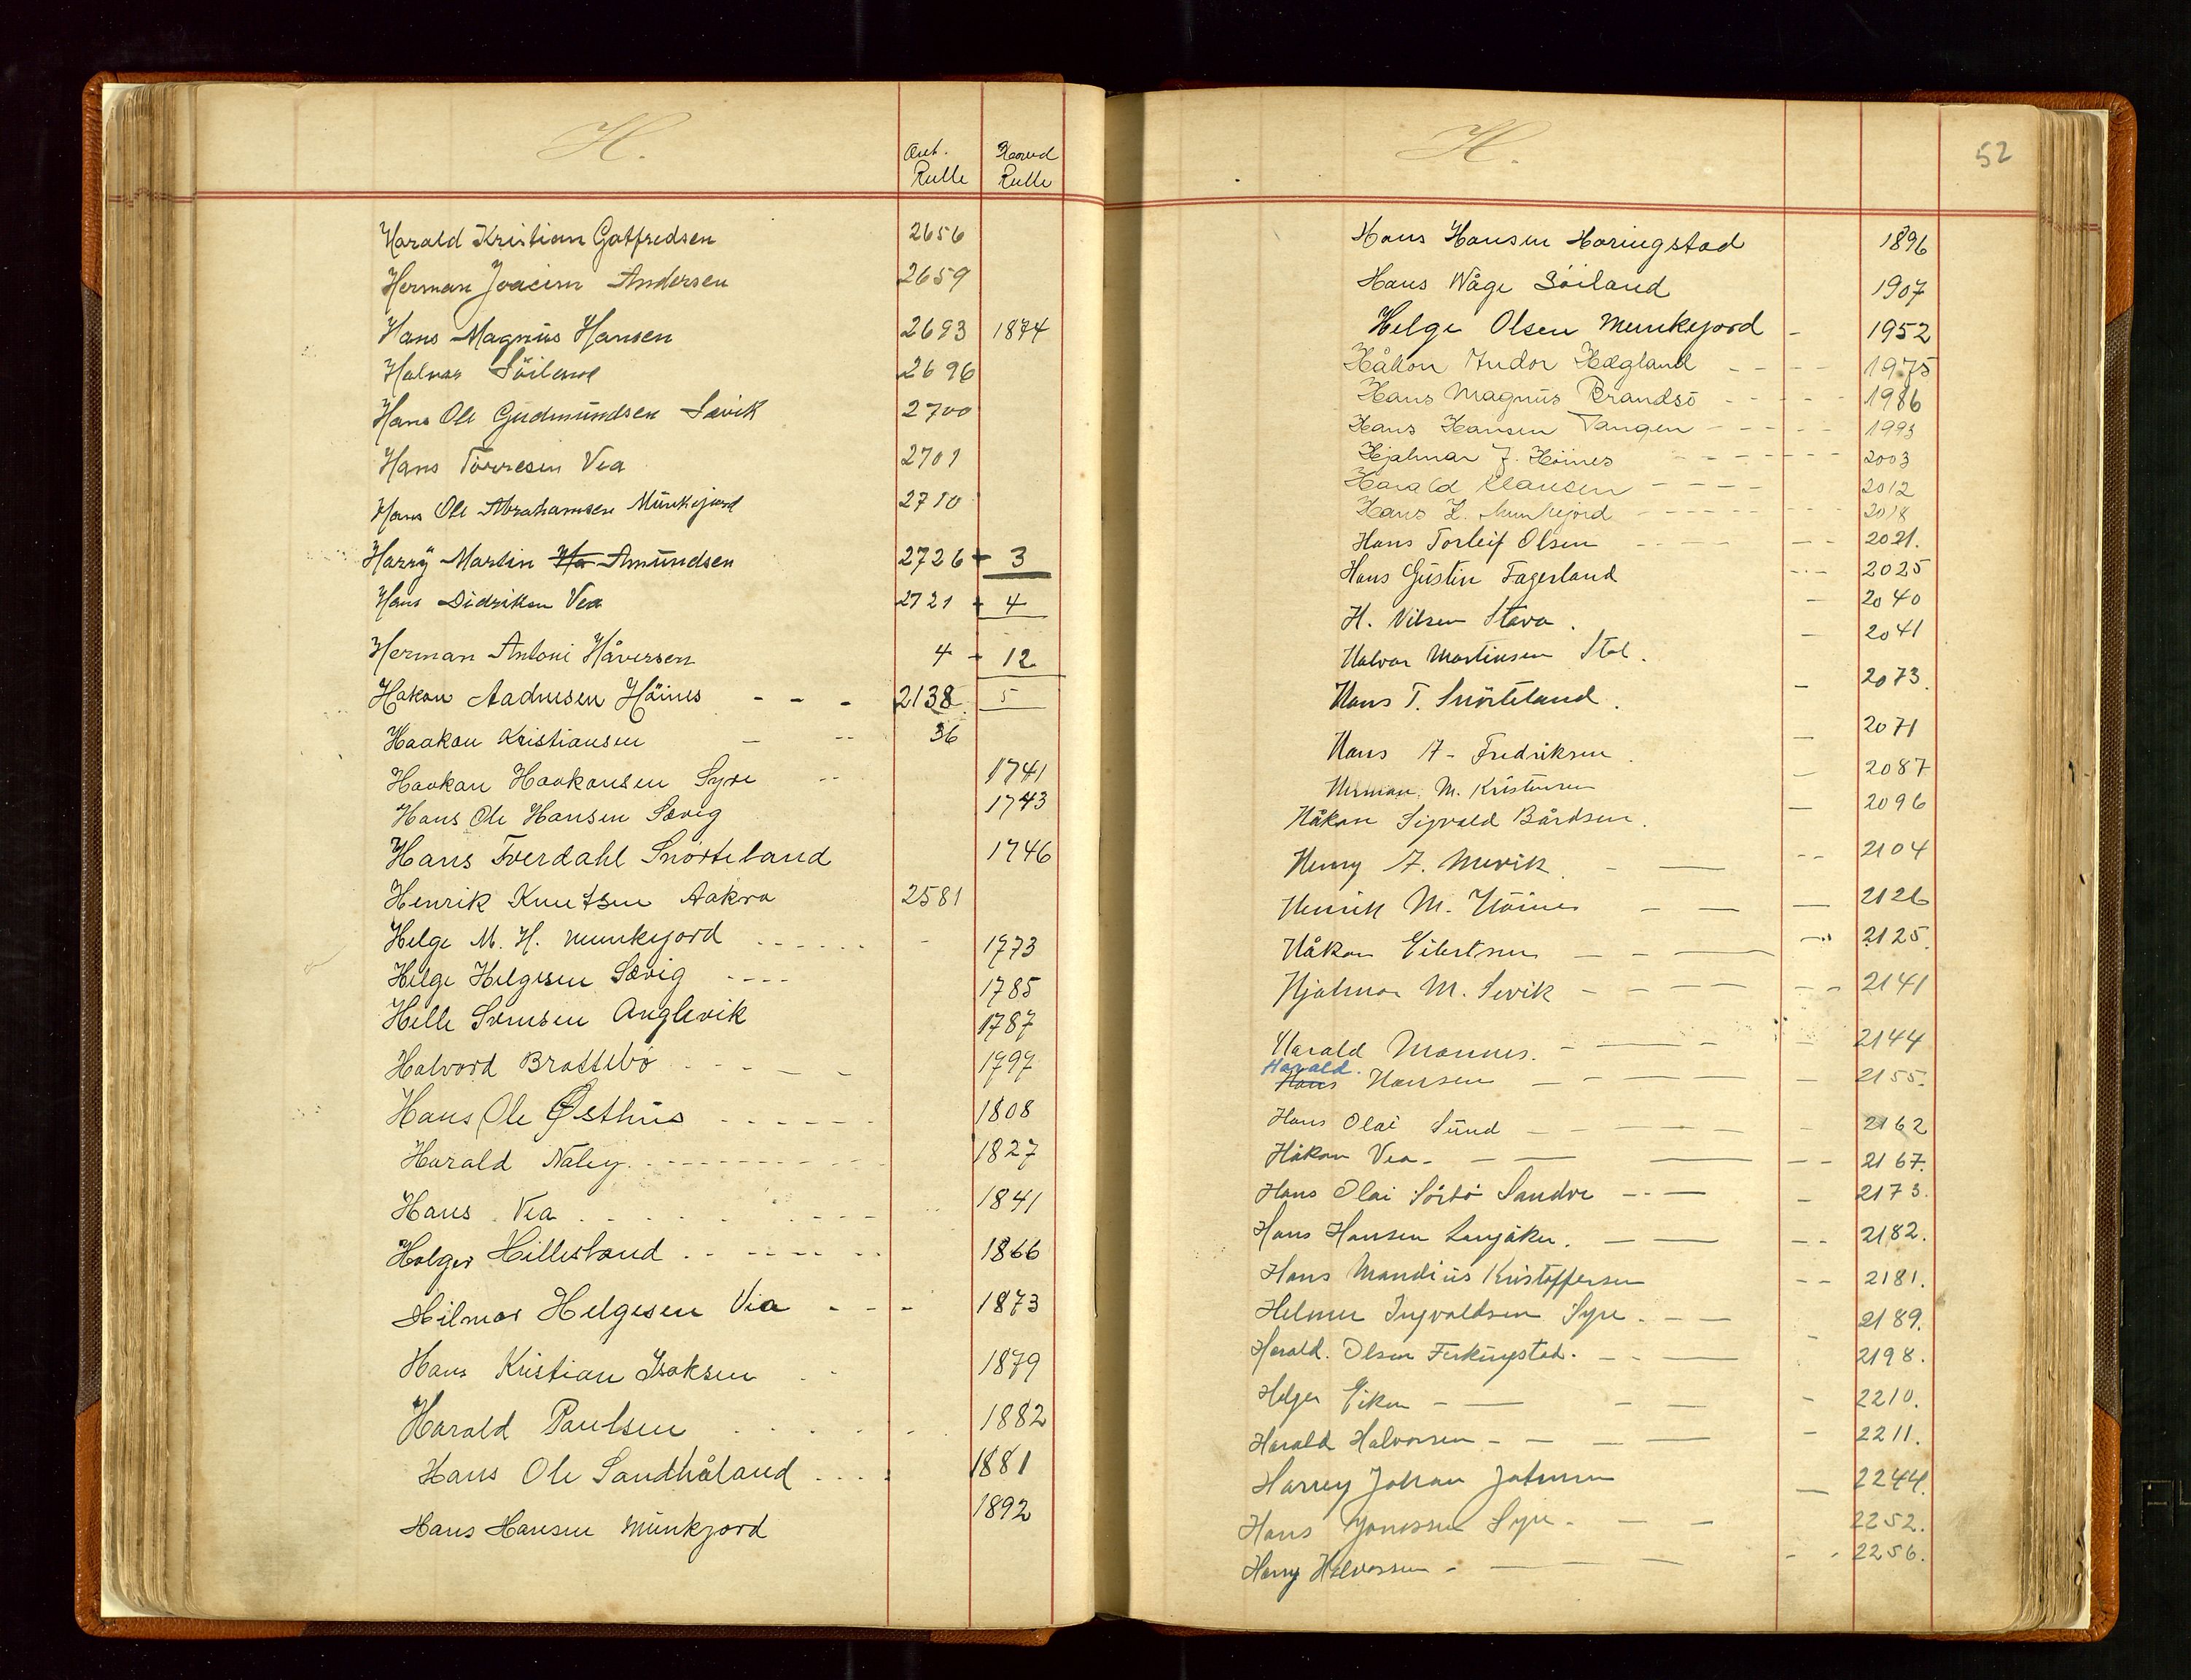 H.
Ant. Hoved
Rulle Rulle
Harald Kristian Gotfredsen 2656
Herman Joacim Andersen 2659
Hans Magnus Hansen 2693 1874
Halvar Söiland 2696
Hans Ole Gudmundsen Sævik 2700
Hans Torresen Vea 2701
Hans Ole Abrahamsen Munkejord 2710
Harry Martin Ha Amundsen 2726 + 3
Hans Didriksen Vea 2721 + 4
Herman Antoni Håversen 4 + 12
Hakon Aadnesen Höines - - - 2138 5
Haakon Kristiansen - -- 36
Haakon Haakonsen Syre -- 1741
Hans Ole Hansen Sævig 1743
Hans Tverdahl Snorteland 1746
Henrik Knutsen Aakra 2581
Helge M. H. Munkejord - 1773
Helge Helgesen Sævig ---- 1785
Helle Svensen Anglevik 1787
Halvord Brattebø 1797
Hans Ole Østhus 1808
Harald Naley 1827
Hans Vea 1841
Holger Hillesland 1866
Hilmar Helgesen Vea - - - 1873
Hans Kristian Isaksen 1879
Harald Paulsen 1882
Hans Ole Sandhåland 1881
Hans Hansen Munkjord 1892
H.
52
Hans Hansen Haringstad 1896
Hans Våge Söiland 1907
Helge Olsen Munkejord - 1952
Håkon Andor Hægland 1975
Hans Magnus Brandsö 1986
Hans Hansen Tangen 1993
Hjalmar J. Höines 2003
Harald Klausen 2012
Hans H. Munkejord 2018
Hans Torleif Olsen 2021.
Hans Gustin Fagerland 2025
H. Nilsen Stava. 2040
Halvar Martinsen Stol. 2041
Hans T. Snörteland. 2073.
Hans A. Fredriksen. 2071
Herman M. Kristensen 2087
Håkon Sigvald Bårdsen. 2096
Henry A. Mevik. 2104
Henrik M. Höines 2126
Håkon Eilertsen 2125.
Hjalmar M. Sevik 2141
Harald Mannes. 2144
Harald.
Hans Hansen 2155.
Hans Olai Sund 2162
Håkon Vea 2167.
Hans Olai Sörbö Sandve 2173.
Hans Hansen Langåker. 2182.
Hans Mandius Kristoffersen 2181.
Helmer Ingvaldsen Syre. 2189.
Harald Olsen Ferkingstad. 2198.
Helge Eiken 2210.
Harald Halvorsen 2211.
Harry Johan Johnsen 2244.
Hans Jonassen Syre 2252.
Harry Halvorsen 2256.